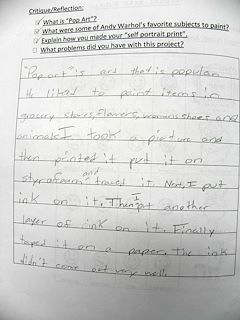 Critique/Reflection:
☑ What is "Pop Art"?
☑ What were some of Andy Warhol's favorite subjects to paint?
☑ Explain how you made your "self portrait print".
☐ What problems did you have with this project?
"Pop art" is art that is popular
He liked to paint items in
grocery stores, flowers, womans shoes and
animals. I took a picture and
then printed it put it on
styrofoam and traced it. Next, I put
ink on it. Then I put another
layer of ink on it. Finally
taped it on a paper. The ink
didn't come out very well.